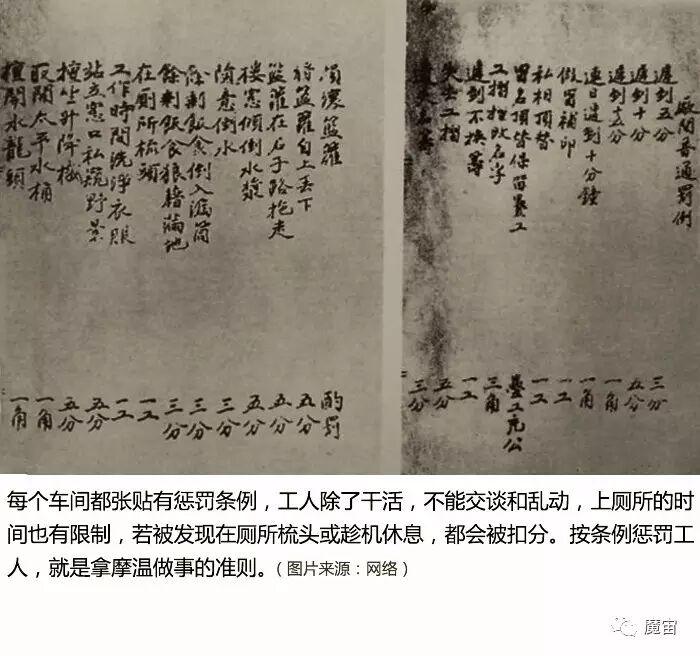 廠間普通罰例
遲到五分 三分
遲到十分 五分
遲到十五分 一角
連日遲到十分鐘 一角
假冒補印 一工
私相頂替 一工
冒名頂替保留養工 臺工充公
工摺挖改名字 三角
遲到不換籌 一工
失去工摺 五分
三分
損壞籃籮 酌罰
將籃籮自上丟下 五分
籃籮在石子路拖走 五分
樓窓傾倒水漿 五分
隨意倒水 三分
餘剩飯食倒入漏筒 三分
餘剩飯食狼藉滿地 三分
在廁所梳頭 一工
工作時間洗淨衣服 一工
站立窓口私窺野景 五分
擅坐升降機 五分
取開太平水桶 一角
擅開水龍頭 一角
每个车间都张贴有惩罚条例，工人除了干活，不能交谈和乱动，上厕所的时
间也有限制，若被发现在厕所梳头或趁机休息，都会被扣分。按条例惩罚工
人，就是拿摩温做事的准则。（图片来源：网络）
魔宙